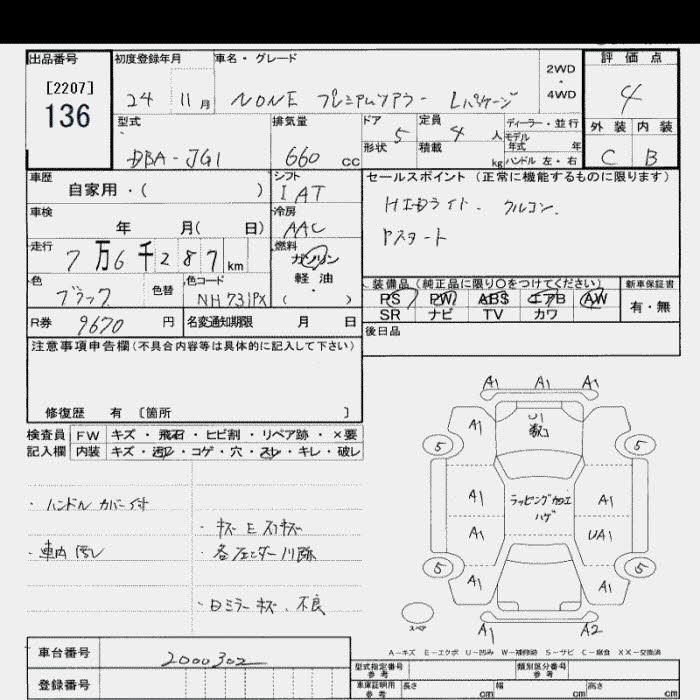 出品番号 初度登録年月 車名・グレード 2WD・4WD 評価点
[2207]
136
24 11月 NONE プレミアムツアラー Lパッケージ 4
型式 排気量 ドア 5 定員 4 人 ディーラー・並行 外装 内装
形状 積載 kg モデル年式 年 ハンドル 左・右
DBA-JG1 660 cc C B
車歴 シフト セールスポイント (正常に機能するものに限ります)
自家用・( ) IAT HIDライト. クルコン.
車検 冷房 Pスタート
年 月( 日) AAC
走行 燃料
7万6千287km ガソリン
軽油
( ・ )
装備品 (純正品に限り○をつけてください) 新車保証書
色 色替 色コード PS PW ABS エアB AW 有・無
ブラック NH731PX SR ナビ TV カワ
R券 9670 円 名変通知期限 月 日 後日品
注意事項申告欄(不具合内容等は具体的に記入して下さい)
修復歴 有 〔箇所 〕
検査員 FW キズ・飛石・ヒビ割・リペア跡・×要
記入欄 内装 キズ・汚れ・コゲ・穴・スレ・キレ・破レ
・ハンドルカバー付
・キズ E スリキズ
・車内汚レ
・各フェンダー爪跡
・日ミラーキズ、不良
A1 A1 A1
A1 U1
5 5
A1 ラッピング加工 A1
ハゲ
A1 UA1
5 5
A1 A1
スペア
A1 A2
A-キズ E-エクボ U-凹み W-補修跡 S-サビ C-腐食 XX-交換済
車台番号 2000302
型式指定番号 参考 類別区分番号 参考
登録番号 車庫証明用 参考 長さ cm 幅 cm 高さ cm